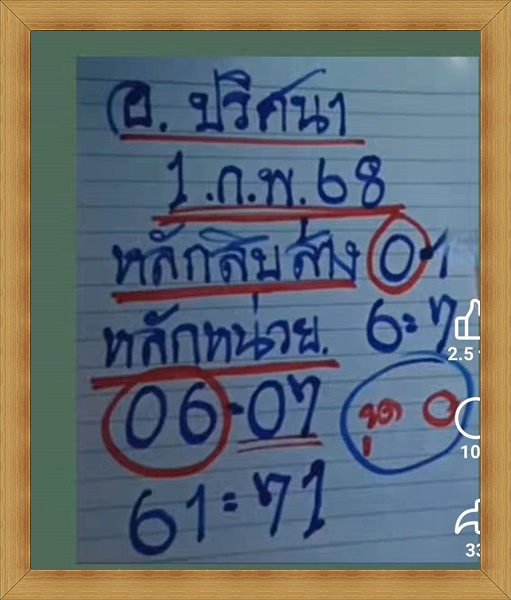 อ. ปริศนา
1.ก.พ.68
หลักสิบล่าง 0-1
หลักหน่วย. 6=7
06-07
รูด 0
61=71
2.5
10
33